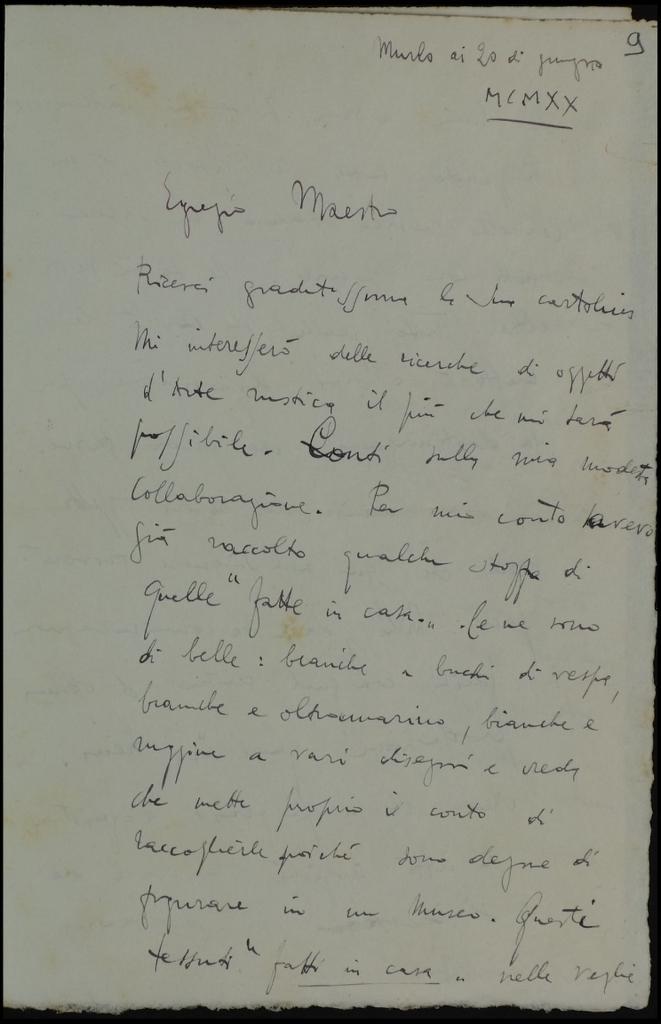 9
Murlo ai 20 di giugno
MCMXX
Egregio Maestro
Ricevei graditissima la Sua cartolina
Mi interesserò delle ricerche di oggetti
d'Arte rustica il più che mi sarà
possibile. Conti sulla mia modesta
Collaborazione. Per mio conto avevo
già raccolto qualche stoffa di
quelle "fatte in casa". Ce ne sono
di belle: bianche a buchi di vespe,
bianche e oltramarino, bianche e
ruggine a vari disegni e creda
che mette proprio il conto di
raccoglierle poiché sono degne di
figurare in un Museo. Questi
tessuti "fatti in casa" nelle veglie